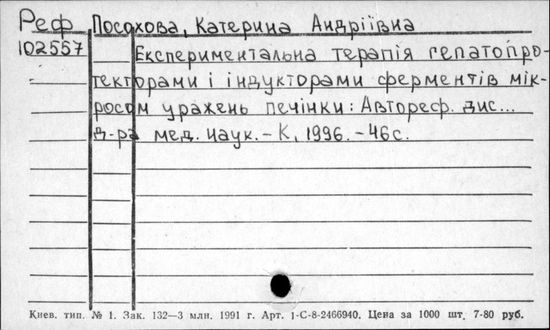 Реф Посохова, Катерина Андріївна
102557 Експериментальна терапія гепатопро-
текторами і індукторами ферментів мік-
росом уражень печінки: Автореф. дис...
д-ра мед. наук. - К, 1996. - 46 с.
Киев. тип. № 1. Зак. 132—3 млн. 1991 г. Арт. 1-С-8-2466940. Цена за 1000 шт. 7-80 руб.